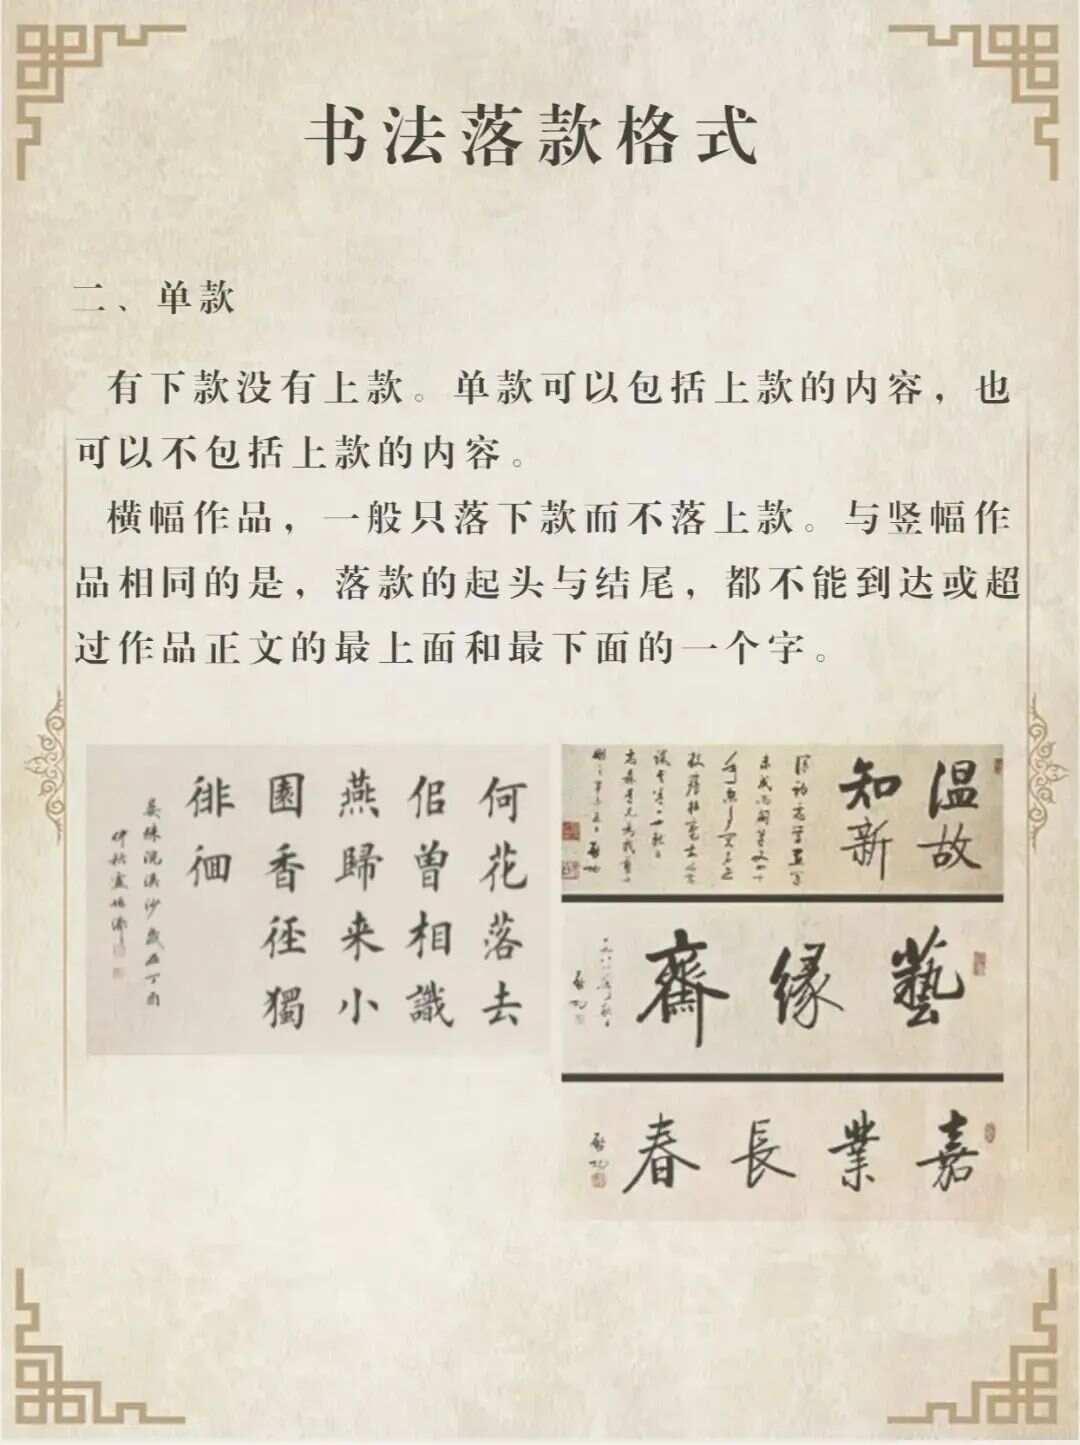 书法落款格式
二、单款
有下款没有上款。单款可以包括上款的内容，也
可以不包括上款的内容。
横幅作品，一般只落下款而不落上款。与竖幅作
品相同的是，落款的起头与结尾，都不能到达或超
过作品正文的最上面和最下面的一个字。
何花落去
佀曾相識
燕歸来小
園香徑獨
徘徊
晏殊浣溪沙歲在丁酉
温故
知新
啟功
藝緣齋
啟功
嘉業長春
啟功